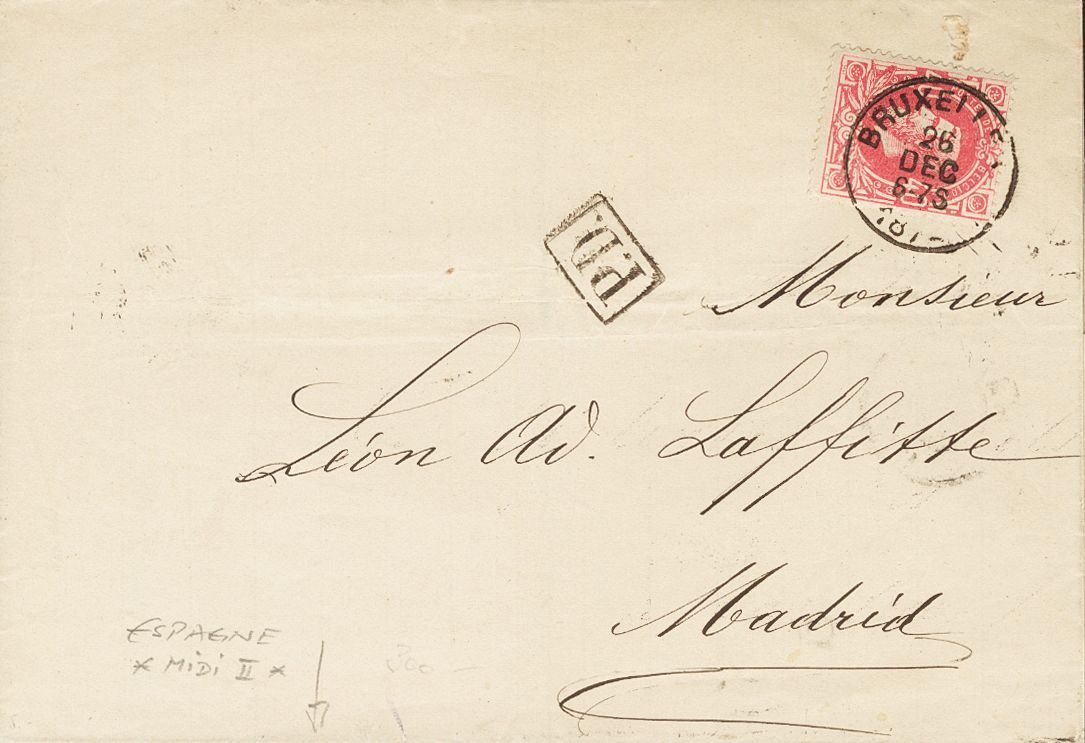 BRUXELLES
26
DEC
6-7S
187
P.D.
Monsieur
Léon Ad. Laffitte
Madrid
ESPAGNE
* MiDi II *
300 -